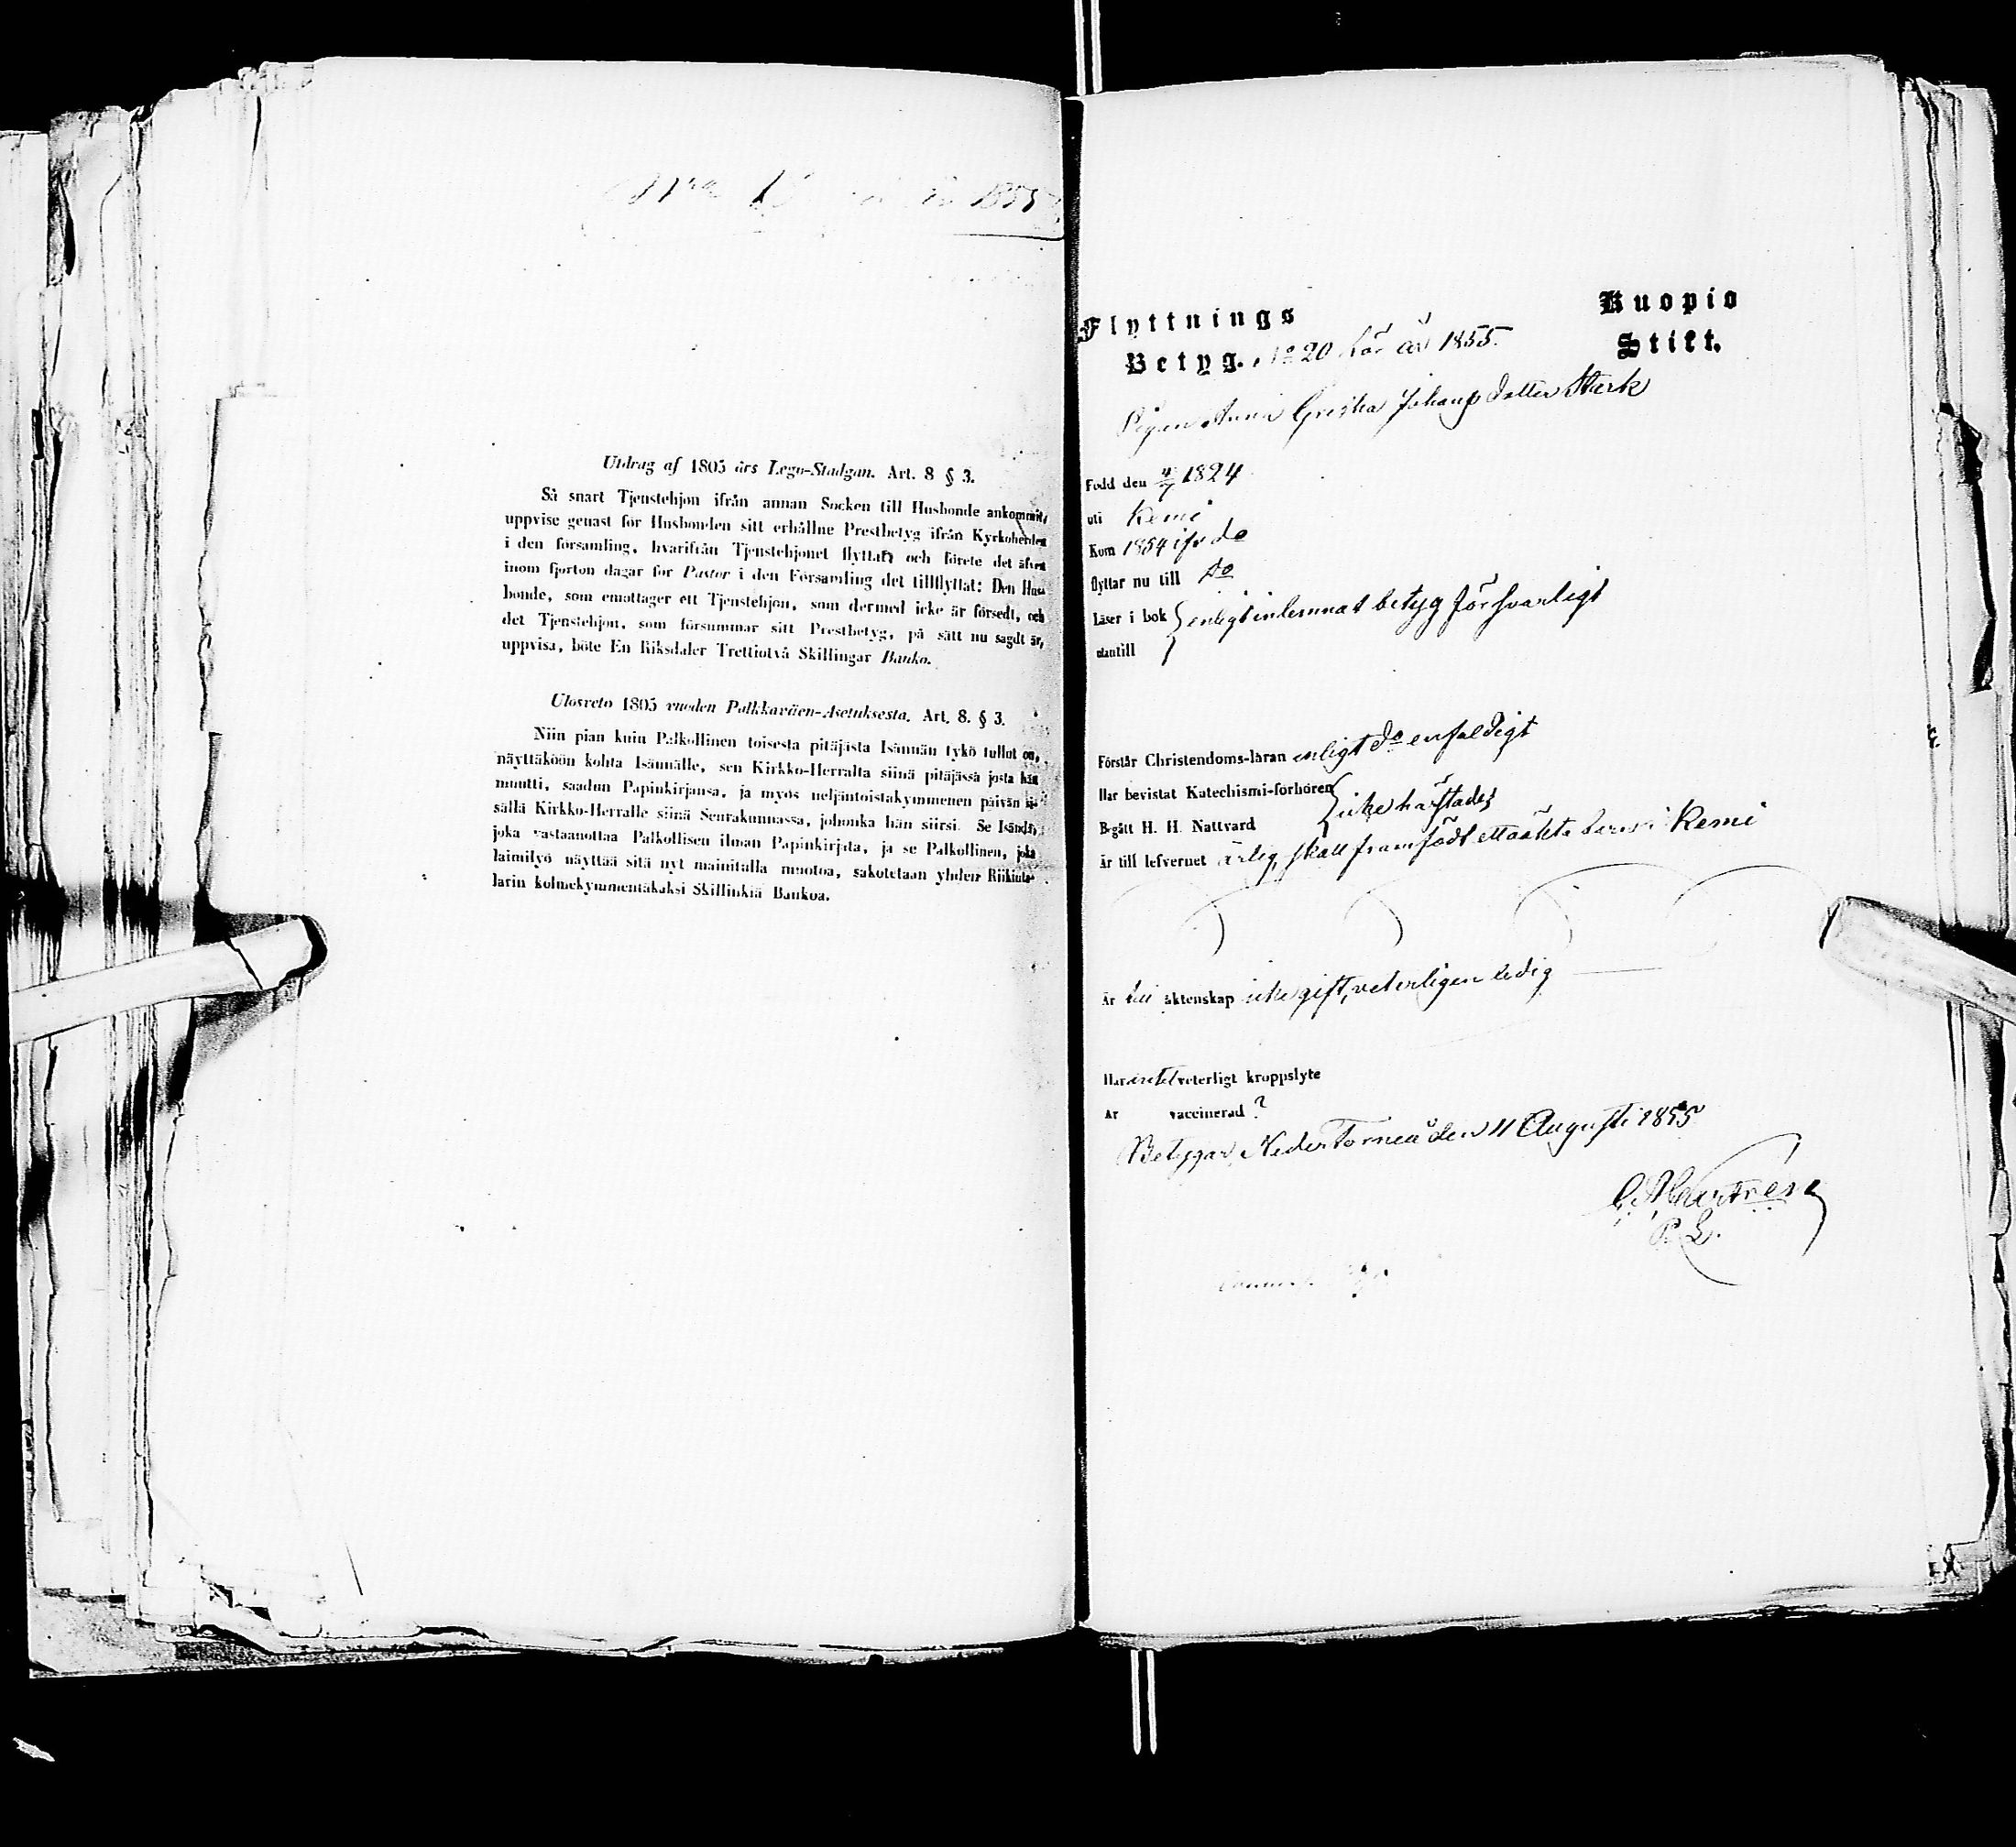 1855
Utdrag af 1805 års Lego-Stadgan. Art. 8 § 3.
Så snart Tjenstehjon ifrån annan Socken till Husbonde ankommit,
uppvise genast för Husbonden sitt erhållne Prestbetyg ifrån Kyrkoherden
i den församling, hvarifrån Tjenstehjonet flyttat, och förete det äfven
inom fjorton dagar för Pastor i den Församling det tillflyttat: Den Hus-
bonde, som emottager ett Tjenstehjon, som dermed icke är försedt, och
det Tjenstehjon, som försummar sitt Prestbetyg, på sätt nu sagdt är,
uppvisa, böte En Riksdaler Trettiotvå Skillingar Banko.
Ulosveto 1805 vuoden Palkkaväen-Asetuksesta. Art. 8. § 3.
Niin pian kuin Palkollinen toisesta pitäjästa Isännän tykö tullut on,
näyttäköön kohta Isännälle, sen Kirkko-Herralta siinä pitäjässä josta hän
muutti, saadun Papinkirjansa, ja myös neljäntoistakymmenen päivän si-
sällä Kirkko-Herralle siinä Seurakunnassa, johonka hän siirsi. Se Isändä,
joka vastaanottaa Palkollisen ilman Papinkirjata, ja se Palkollinen, joka
laimilyö näyttää sitä nyt mainitulla muotoa, sakotetaan yhden Riikinta-
larin kolmekymmentäkaksi Skillinkiä Bankoa.
Flyttnings Kuopio
Betyg. No 20 för år 1855. Stift.
Pigan Anna Greta Johans dotter Stark
Född den 4/7 1824
uti Kemi
Kom 1854 ifr do
flyttar nu till do
Läser i bok enligt inlemnat betyg försvarligt
utantill
Förstår Christendoms-läran enligt do enfaldigt
Har bevistat Katechismi-förhören
Begått H. H. Nattvard icke härstädes
är till lefvernet ärlig, skall framfödt ett oäkta barn i Kemi
är till äktenskap icke gift, veterligen ledig
Har intet veterligt kroppslyte
Är vaccinerad ?
Betygar, Neder Torneå den 11 Augusti 1855
P. L.